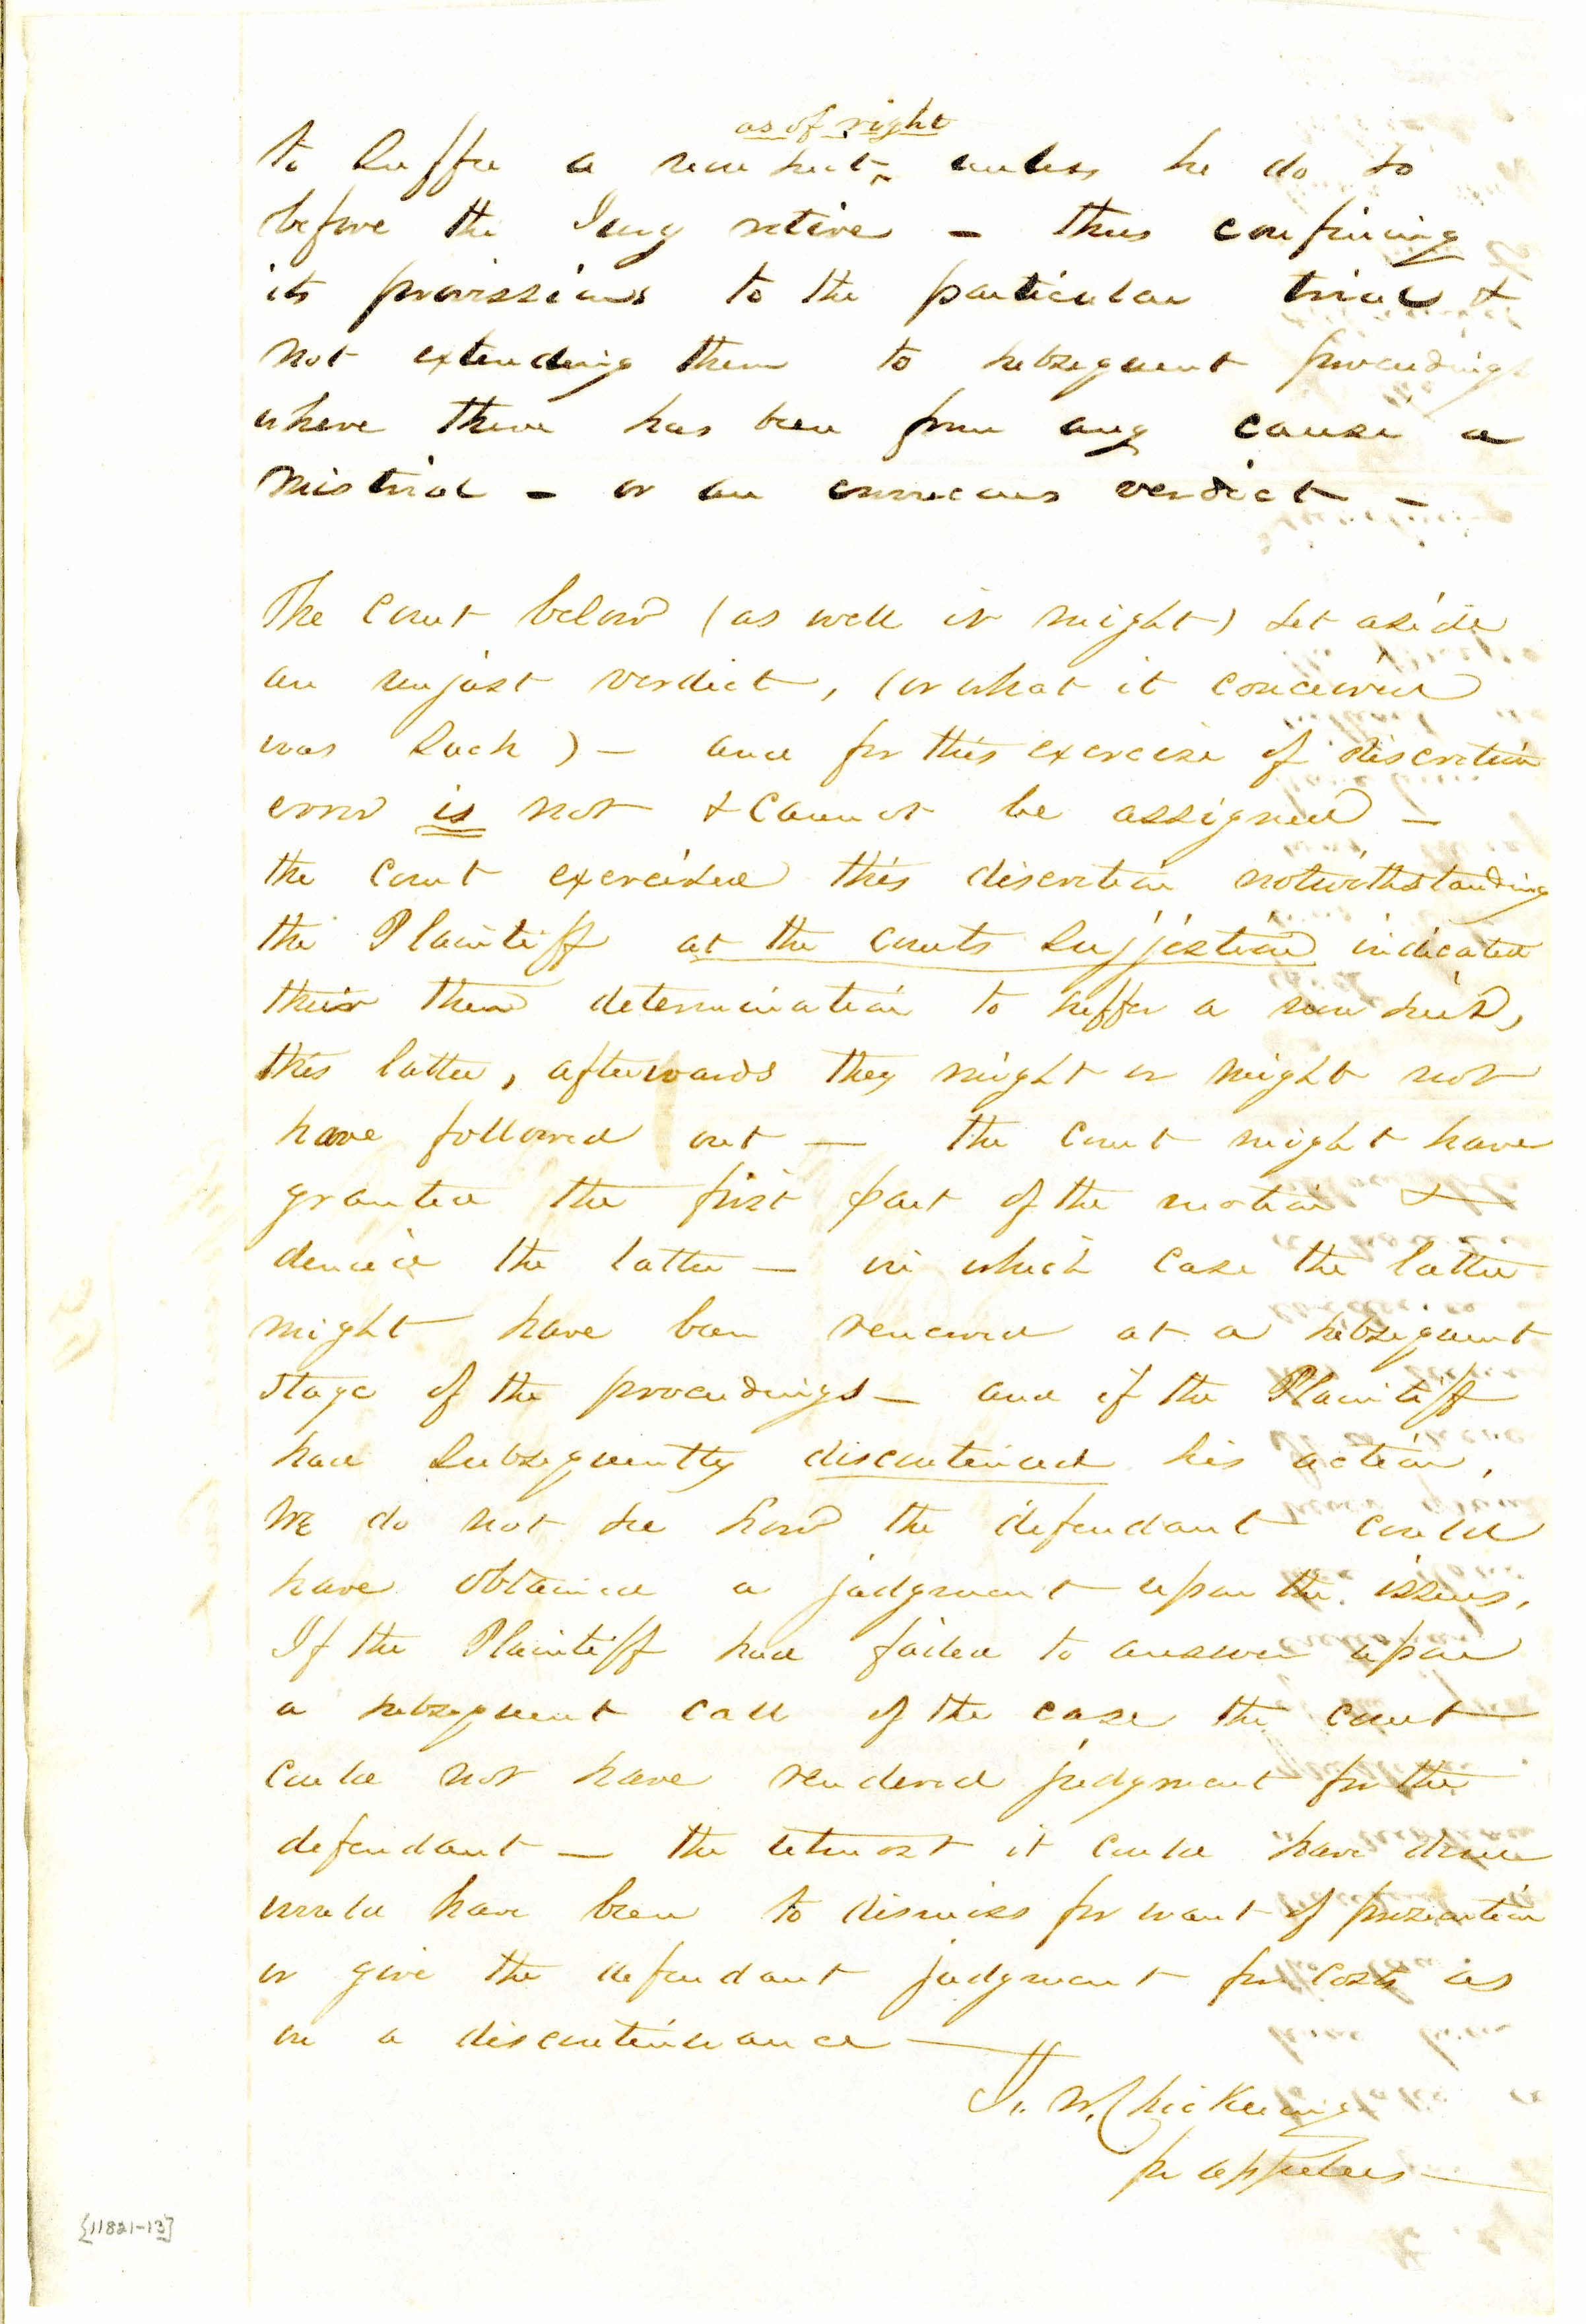 as of right
to suffer a non suit ‸ unless he do so
before the Jury retire — thus confining
its provisions to the particular trial &
not extending them to subsequent proceedings
where there has been from any cause a
mistrial — or an erroneous verdict —
The Court below (as well it might) set aside
an unjust verdict, (or what it conceived
was such) — and for this exercise of discretion
error is not & cannot be assigned —
the Court exercised this discretion notwithstanding
the Plaintiff at the courts sujjestion indicated
their then determination to suffer a non suit,
this latter, afterwards they might or might not
have followed out — the Court might have
granted the first part of the motion &
denied the latter — in which case the latter
might have been renewed at a subsequent
stage of the proceedings — and if the Plaintiff
had subsequently discontinued his action,
We do not see how the defendant could
have obtained a judgment upon the issues,
If the Plaintiff had failed to answer upon
a subsequent call of the case the court
could not have rendered judgment for the
defendant — the utmost it could have done
would have been to dismiss for want of prosecution
or give the defendant judgment for costs as
on a discontinuance —
J. W. Chickering
for appellees
[11821-13]